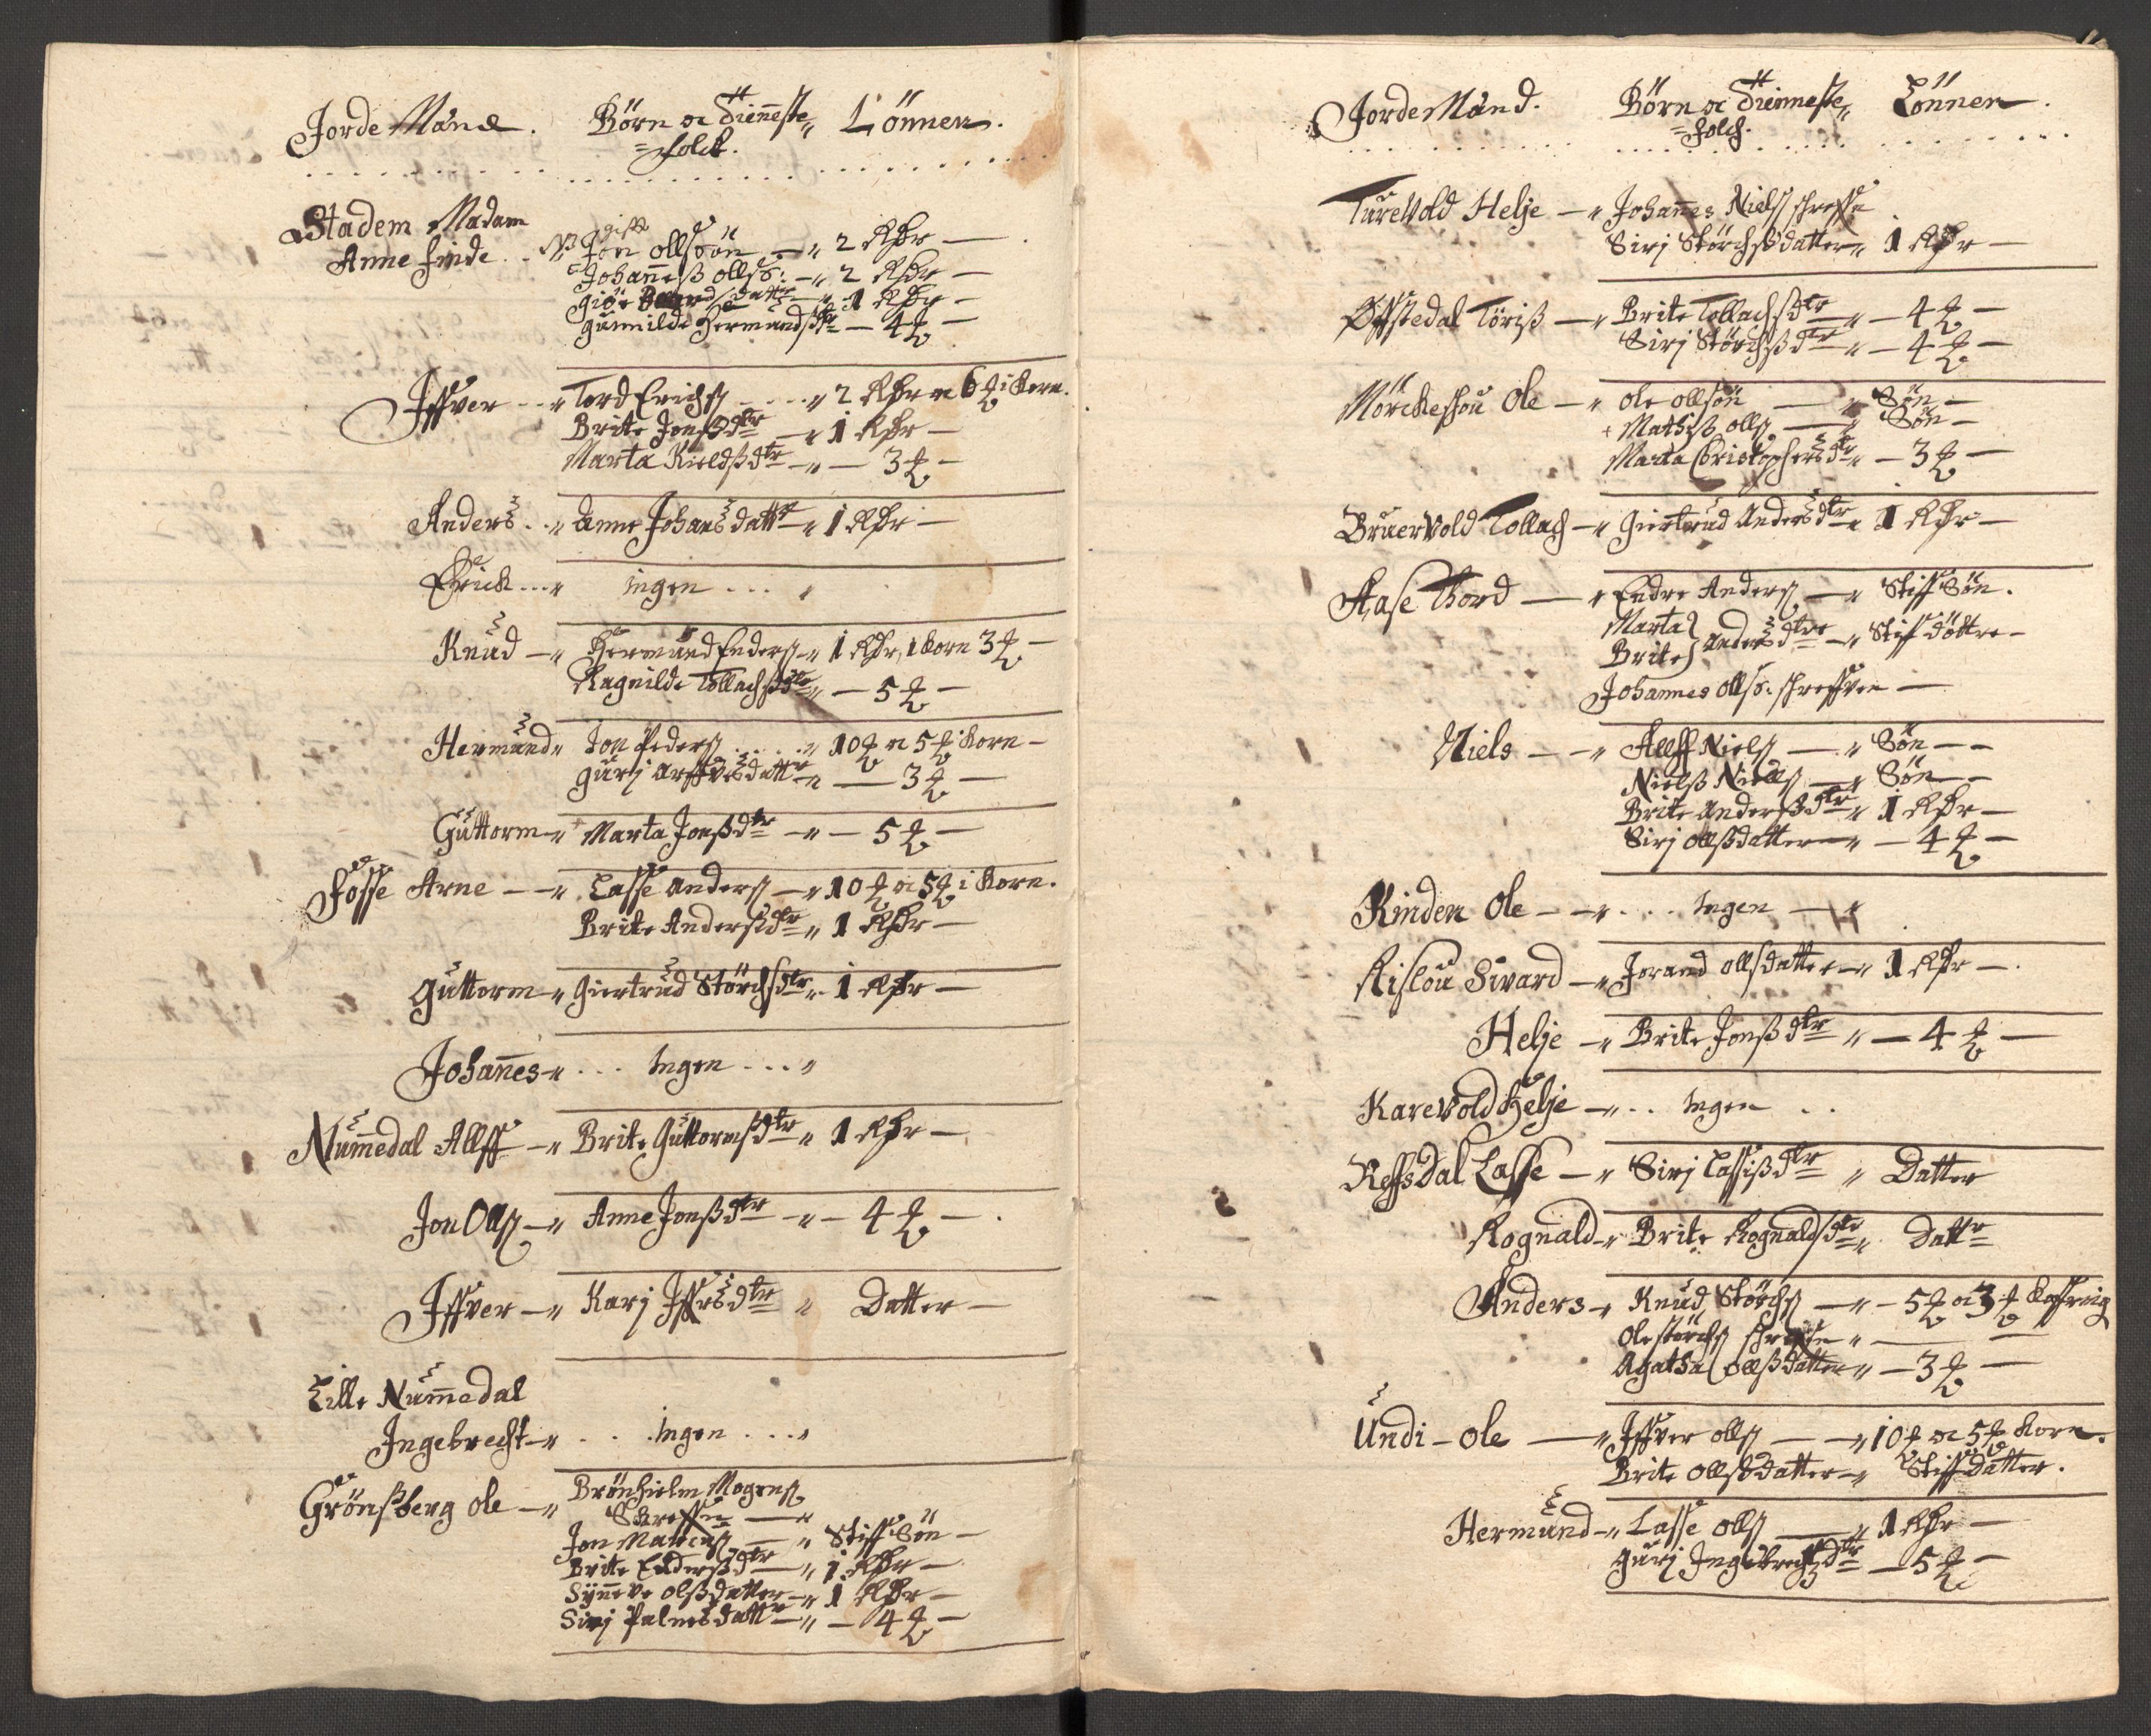 Jorde Mänd. Börn oc Tienneste„ Lönnen.
=folck.
Stadem Madam
Anne finde .. Jon ollsöön — „ 2 Rdr —
Johanneß ollsö: — „ 2 Rdr —
giör datter — „ 1 Rdr —
gunnilde Hermundsdtr — 4 ₰ —
Jffver ... „ Tord Erichs .... „ 2 Rdr oc 6 ₰ i korn.
Brite Jonßdtr — „ 1 Rdr —
Marta Kieldßdtr — „ — 3 ₰ —
Anders .. „ Anne Johansdattr — „ 1 Rdr —
Erick ... „ ingen ... „
Knud — „ Hermund Enders — „ 1 Rdr, i korn 3 ₰ —
Ragnilde Tollachßdtr „ — 5 ₰ —
Hermund „ Jon Peders ..... „ 10 ₰ oc 5 ₰ i korn —
gurj arffvesdattr — „ — 3 ₰ —
Guttorm — „ Marta Jonßdtr — „ — 5 ₰ —
Fosse Arne — — „ Lasse anders — „ 10 ₰ oc 5 ₰ i korn.
Brite Andersdtr „ 1 Rdr —
Guttorm — „ Giertrud Störchsdtr „ 1 Rdr —
Johannes — „ ... Ingen ... „
Nummedal Allff — „ Brite Guttormßdtr „ 1 Rdr —
Jon Olls — „ Anne Jonßdtr — „ — 4 ₰ —
Jffver — „ Karj Jffrsdtr „ Datter —
Lille Nummedal
Ingebrecht — „ .. ingen ... „
Grönßberg ole — „ Brönhielm Mogens
Skreffn — „
Jon Matties — „ Stiff Sön —
Brite Endersdtr — „ 1 Rdr —
Synneve olßdatter — „ 1 Rdr —
Sirj Palmesdattr — „ — 4 ₰ —
Jorde Mänd. Börn oc Tienneste„ Lönnen.
=folch.
Turevold Helje — „ Johannes Niels
Sirj Störchßdatter „ 1 Rdr —
Öffstedal Töriß — „ Brite Tollachßdtr — „ — 4 ₰ —
Sirj Störchßdtr — „ — 4 ₰ —
Mörckeskou Ole — „ ole ollsön — „ Sön —
Mathiß olls — „ Sön —
Marta Christophersdtr „ — 3 ₰ —
Bruervold Tollach — „ Giertrud Andersdtr „ 1 Rdr —
Aase Thord — „ Endre Anders — „ Stiff Sön.
Marta }
Brite } Andersdtre — „ Stif döttre —
Johannes ollsö:
Niels — — „ Allff Niels — „ Sön — —
Nielß Niels — „ Sön — —
Brite Anderßdtr „ 1 Rdr —
Sirj ollßdatter — „ — 4 ₰ —
Rinden Ole — — „ ... Ingen — „
Rislou Sivard — „ Jorand ollsdatter — „ 1 Rdr —.
Helje — „ Brite Jonßdtr „ — 4 ₰ —
Karevold Helje — „ .. Ingen ..
Reffsdal Lasse — „ Sirj Lassißdtr „ Datter
Rognald — „ Brite Rognaldsdtr „ Dattr
Anders — „ Knud Störchs — „ — 5 ₰ oc 3 ₰
Ole störchs „ — —
Agatha ollßdatter „ — 3 ₰ —
Undi - ole — „ Jffver olls — — „ 10 ₰ oc 5 ₰ korn.
Brite ollsdatter — „ Stiff datter.
Hermund — „ Lasse olls — „ 1 Rdr —
Gurj Ingebrechtsdtr — 5 ₰ —